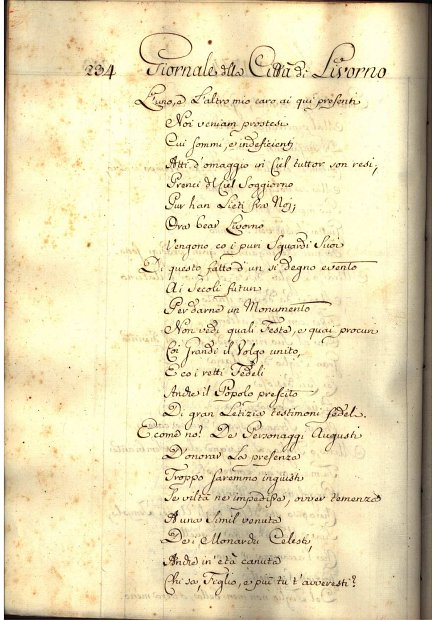 234 Giornale della Città di Livorno
L'uno, e L'altro mio caro, ai qui presenti
Noi veniam prostesi
Cui sommi, e indeficienti
Atti d'omaggio in Ciel tuttor son resi,
Prenci del Ciel Soggiorno
Pur han Lieti fra Noi;
Ora bear Livorno
Vengono, co i puri Sguardi Suoi
Di questo fatto d'un sì degno evento
Ai Secoli futuri
Per darne un Monumento
Non vedi quali Feste, e quai procuri
Coi Grandi il Volgo unito,
E co i retti Fedeli
Anche il Popolo prescito
Di gran Letizia testimoni fedel.
E come no! De Personaggi Augusti
D'onorar La presenza
Troppo saremmo ingiusti
Se viltà ne impediva, ovver temenza
A una Simil venuta
De i Monarchi Celesti,
Anche in età canuta
Chi sà, Figlio, e più tu t'avveresti?